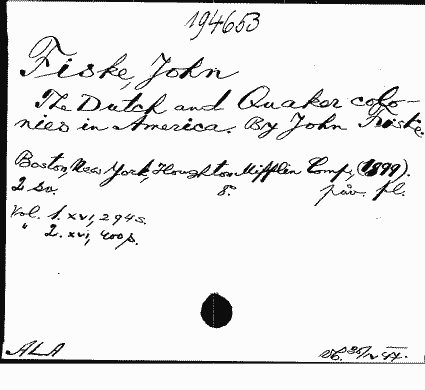 194653
Fiske, John
The Dutch and Quaker colo-
nies in America. By John Fiske.
Boston, New York, Houghton Mifflin Comp, (1899).
2 sv. 8. påv. pl.
Vol. 1. xvi, 294 s.
" 2. xvi, 400 p.
ALA